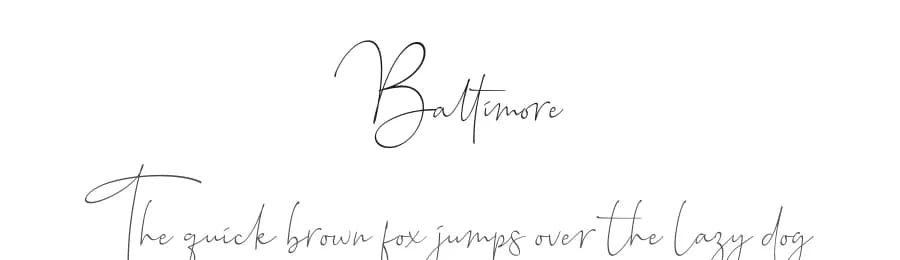 Baltimore
The quick brown fox jumps over the lazy dog